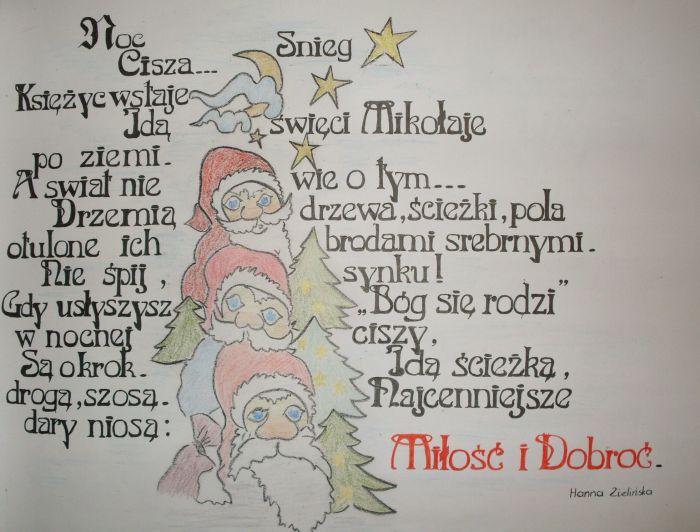 Noc Śnieg
Cisza...
Księżyc wstaje
Idą święci Mikołaje
po ziemi.
A świat nie wie o tym...
Drzemią drzewa, ścieżki, pola
otulone ich brodami srebrnymi.
Nie śpij, synku!
Gdy usłyszysz „Bóg się rodzi”
w nocnej ciszy,
Są o krok. Idą ścieżką,
drogą, szosą. Najcenniejsze
dary niosą:
Miłość i Dobroć.
Hanna Zielińska